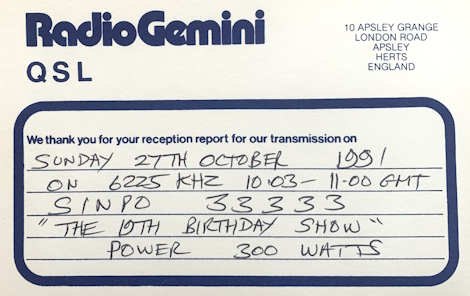 RadioGemini
QSL
10 APSLEY GRANGE
LONDON ROAD
APSLEY
HERTS
ENGLAND
We thank you for your reception report for our transmission on
SUNDAY 27TH OCTOBER 1991
ON 6225 KHZ 10·03 - 11·00 GMT
SINPO 33333
"THE 19TH BIRTHDAY SHOW"
POWER 300 WATTS